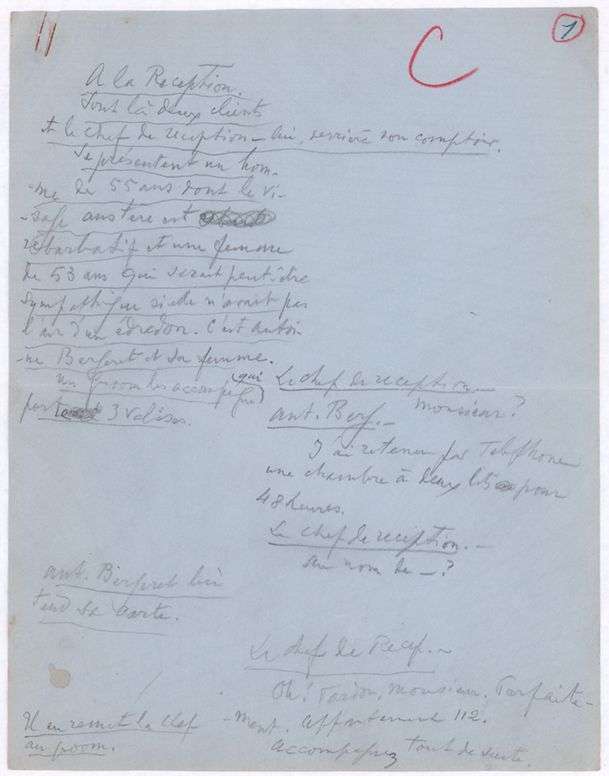 1
C
A la Reception.
Sont là deux clients
et le chef de reception – lui, derrière son comptoir.
Se présentent un hom-
-me de 55 ans dont le vi-
-sage austère est
rébarbatif et une femme
de 53 ans qui serait peut-être
sympathique si elle n'avait pas
l'air d'un édredon. C'est Antoi-
-ne Bergeret et sa femme.
un groom les accompagne (qui
porte 3 valises.
Le chef de reception –
Monsieur?
Ant. Berg. –
J'ai retenu par Telephone
une chambre à deux lits pour
48 heures.
Le chef de reception. –
Au nom de – ?
Ant. Bergeret lui
tend sa carte.
Le chef de Récep. –
Oh! Pardon, Monsieur. Parfaite-
-ment. Appartement 112.
Il en remet la clef
au groom.
Accompagnez tout de suite.